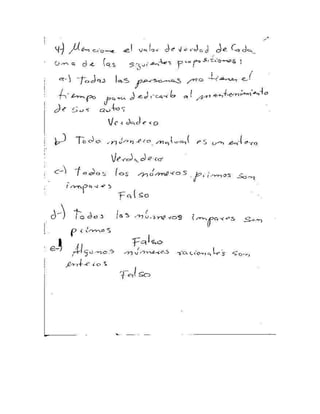 4) Mencione el valor de verdad de Cada
una de las siguientes proposiciones:
a-) Todas las personas no tienen el
tiempo para dedicarlo al mantenimiento
de sus autos
Verdadero
b) Todo número natural es un entero
Verdadero
c-) Todos los números primos son
impares
Falso
d-) Todos los números impares son
primos
Falso
e-) Algunos números racionales son
enteros
Falso